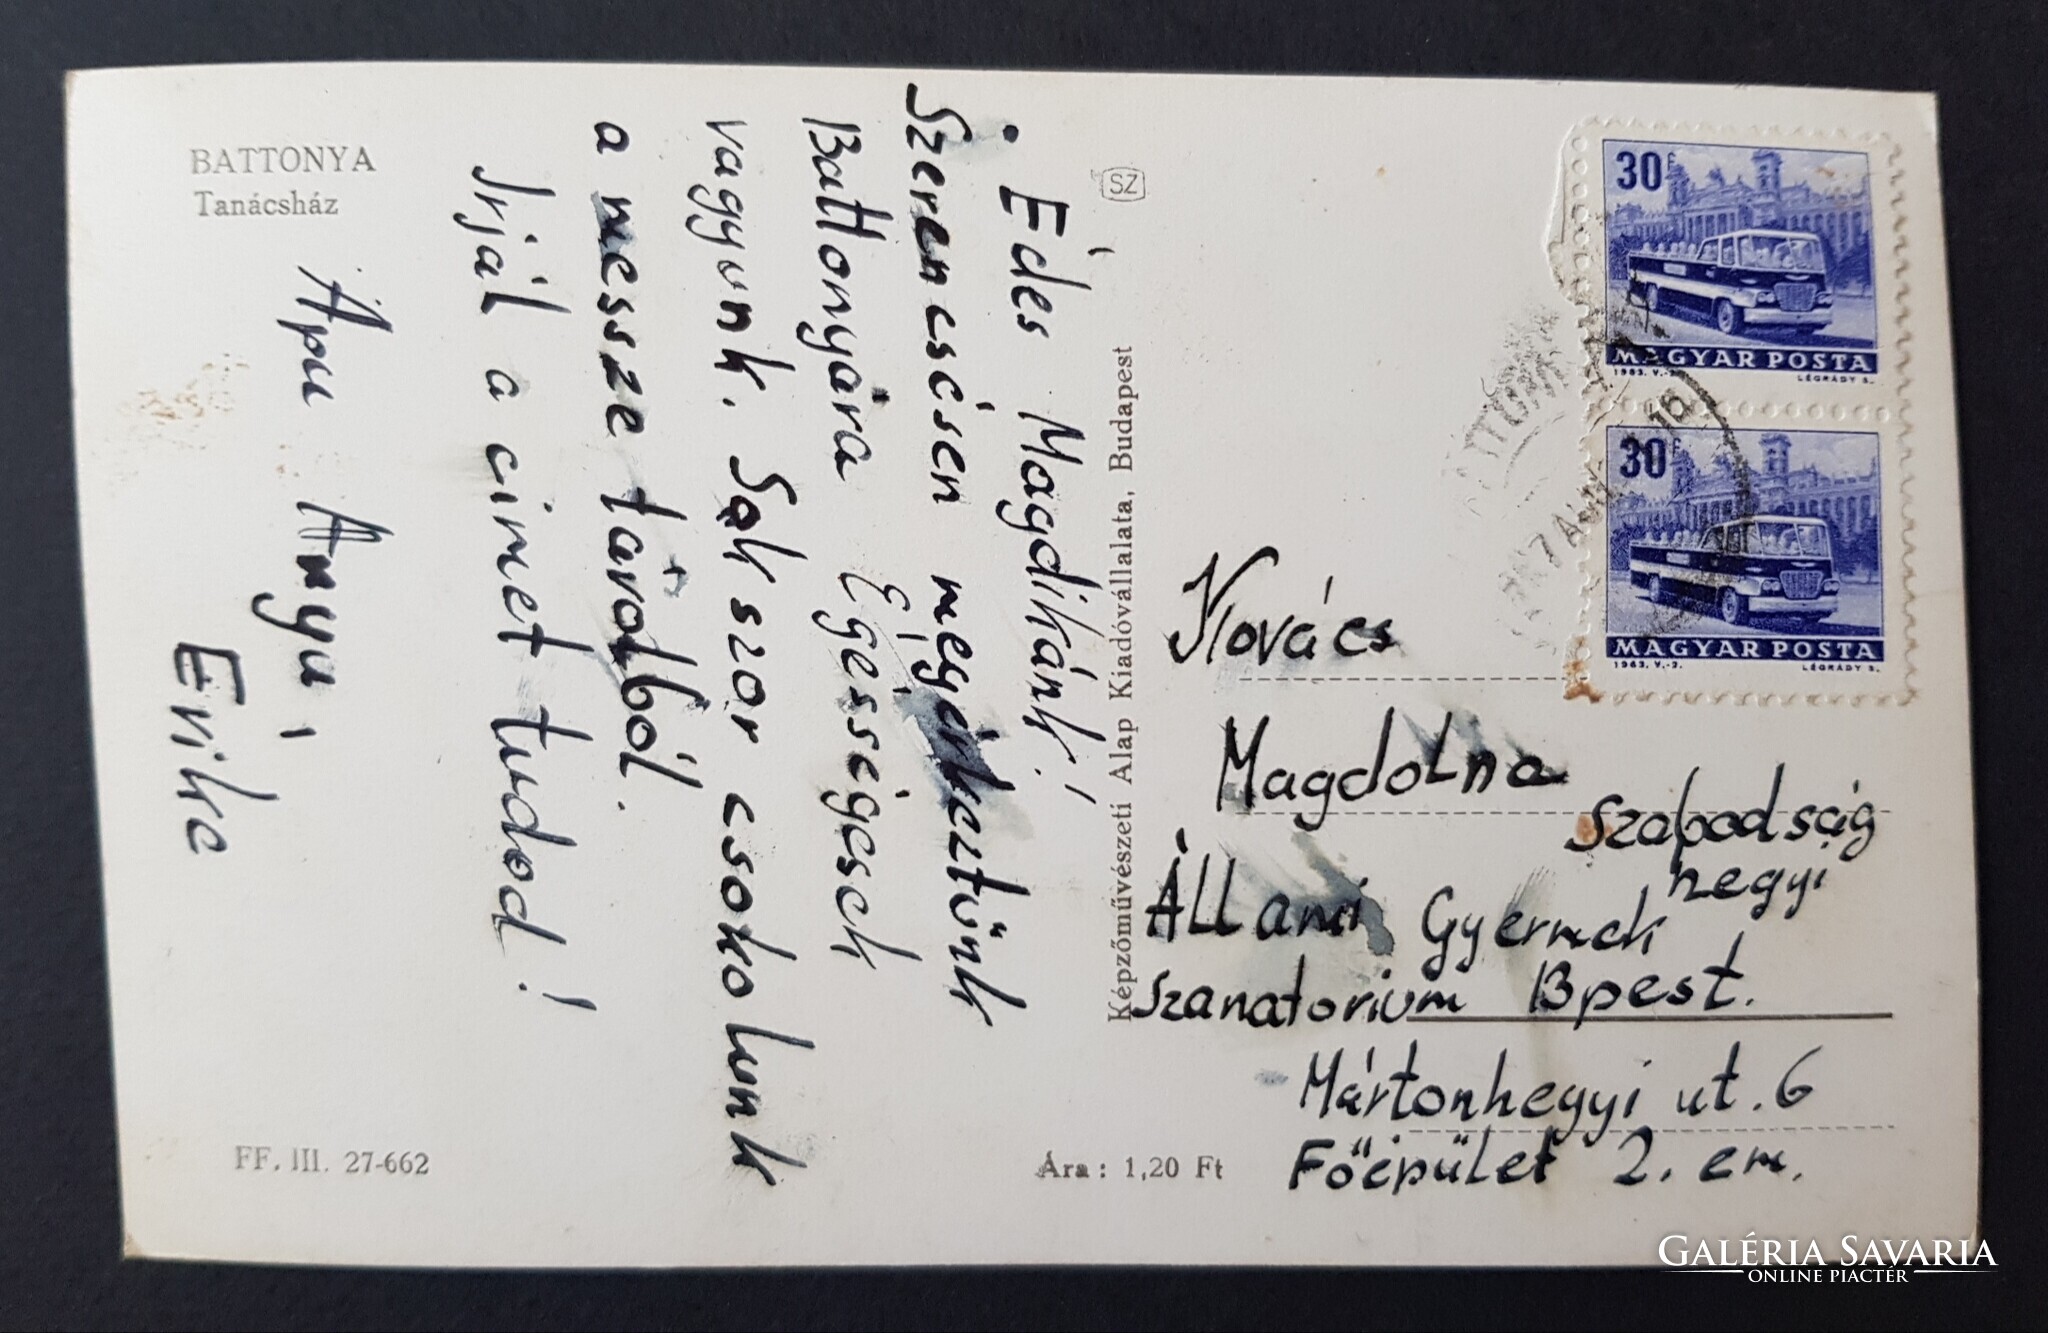 BATTONYA
Tanácsház
Édes Magdikánk!
Szerencsésen megérkeztünk
Battonyára Egésségesek
vagyunk. Sokszor csokolunk
a messze távolból.
Irjál a cimet tudod!
Apu Anyu,
Evike
FF. III. 27-662
Ára: 1,20 Ft
SZ
Képzőművészeti Alap Kiadóvállalata, Budapest
30f
MAGYAR POSTA
1963. V.-2. LÉGRÁDY S.
30f
MAGYAR POSTA
1963. V.-2. LÉGRÁDY S.
Kovács
Magdolna
Szabadság
hegyi
Állami Gyermek
Szanatorium Bpest.
Mártonhegyi ut. 6
Főépület 2. em.
GALÉRIA SAVARIA
ONLINE PIACTÉR